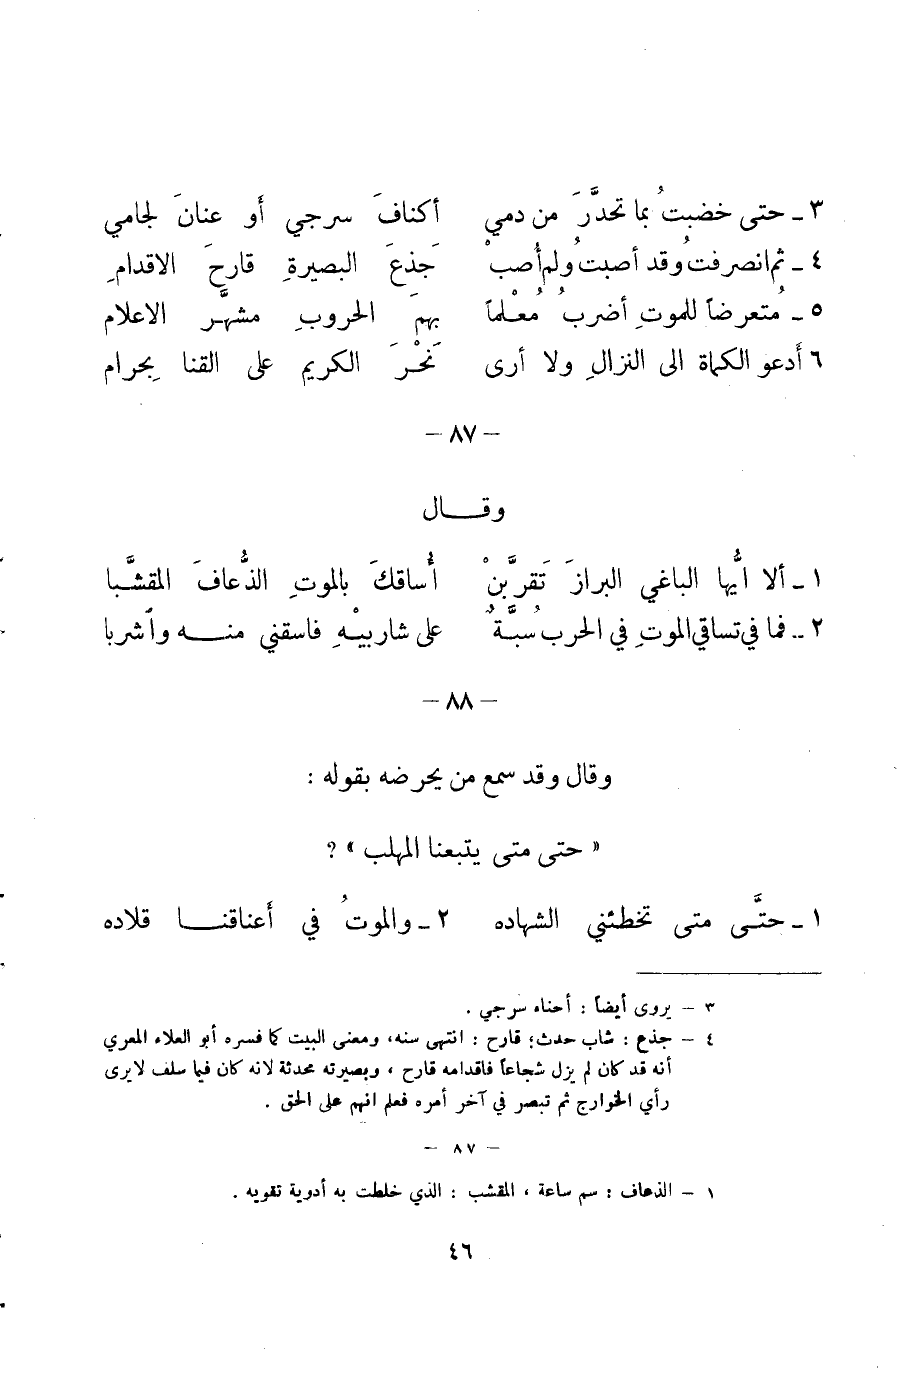 ٣ ـ حتى خضبتُ بما تحدَّرَ من دمي أكنافَ سرجي أو عنانَ لجامي
٤ ـ ثم انصرفتُ وقد أصبتُ ولم أُصبْ جذعَ البصيرةِ قارحَ الاقدامِ
٥ ـ مُتعرضاً للموتِ أضربُ مُعْلماً بهمَ الحروبِ مشهَّر الاعلام
٦ أدعو الكماة الى النزالِ ولا أرى نَحْرَ الكريم على القنا بِحرام
– ٨٧ –
وقـــال
١ ـ ألا ايُّها الباغي البرازَ تَقرَّبنْ أُساقكَ بالموتِ الذُّعافَ المقشَّبا
٢ ـ فما في تساقي الموتِ في الحربِ سُبَّةٌ على شاربيْهِ فاسقني منـــه وأشربا
– ٨٨ –
وقال وقد سمع من يحرضه بقوله :
« حتى متى يتبعنا المهلب » ؟
١ ـ حتَّى متى تخطئني الشهاده ٢ ـ والموتُ في أعناقنـــا قلاده
٣ – يروى أيضاً : أحناء سرجي .
٤ – جذع : شاب حدث؛ قارح : انتهى سنه، ومعنى البيت كما فسره أبو العلاء المعري
أنه قد كان لم يزل شجاعاً فاقدامه قارح ، وبصيرته محدثة لانه كان فيما سلف لايرى
رأي الخوارج ثم تبصر في آخر أمره فعلم انهم على الحق .
– ٨٧ –
١ – الذعاف : سم ساعة ، المقشب : الذي خلطت به أدوية تقويه .
٤٦